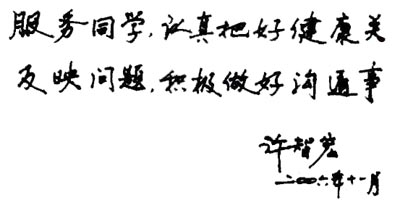 服务同学,认真把好健康关
反映问题,积极做好沟通事
许智宏
二〇〇六年十一月